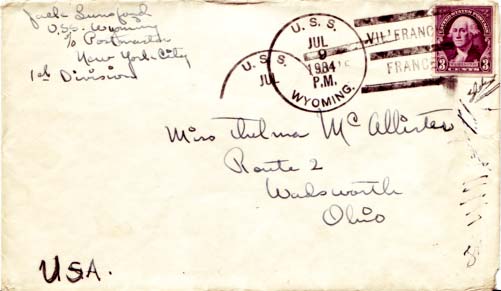 Jack Lunsford
U.S.S. Wyoming
c/o Postmaster
New York City
1st Division
U.S.S.
JUL
U.S.S.
JUL
9
1934
P.M.
WYOMING.
VIL'FRANC
FRANCE
UNITED STATES POSTAGE
3 CENTS 3
Miss Thelma McAllister
Route 2
Wadsworth
Ohio
U.S.A.